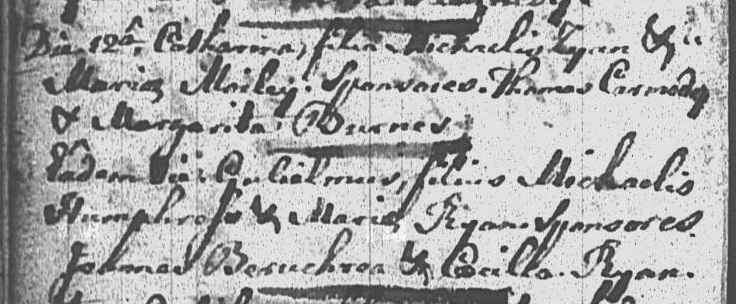 Die 12ª. Catharina, filia Michaelis Ryan &
Mariæ Mailey. Sponsores. Thomas Carmody
& Margarita Burnes
Eâdem Die. Gulielmus, filius Michaelis
Humphreys & Mariæ Ryan. Sponsores.
Joannes & Cecilla. Ryan.